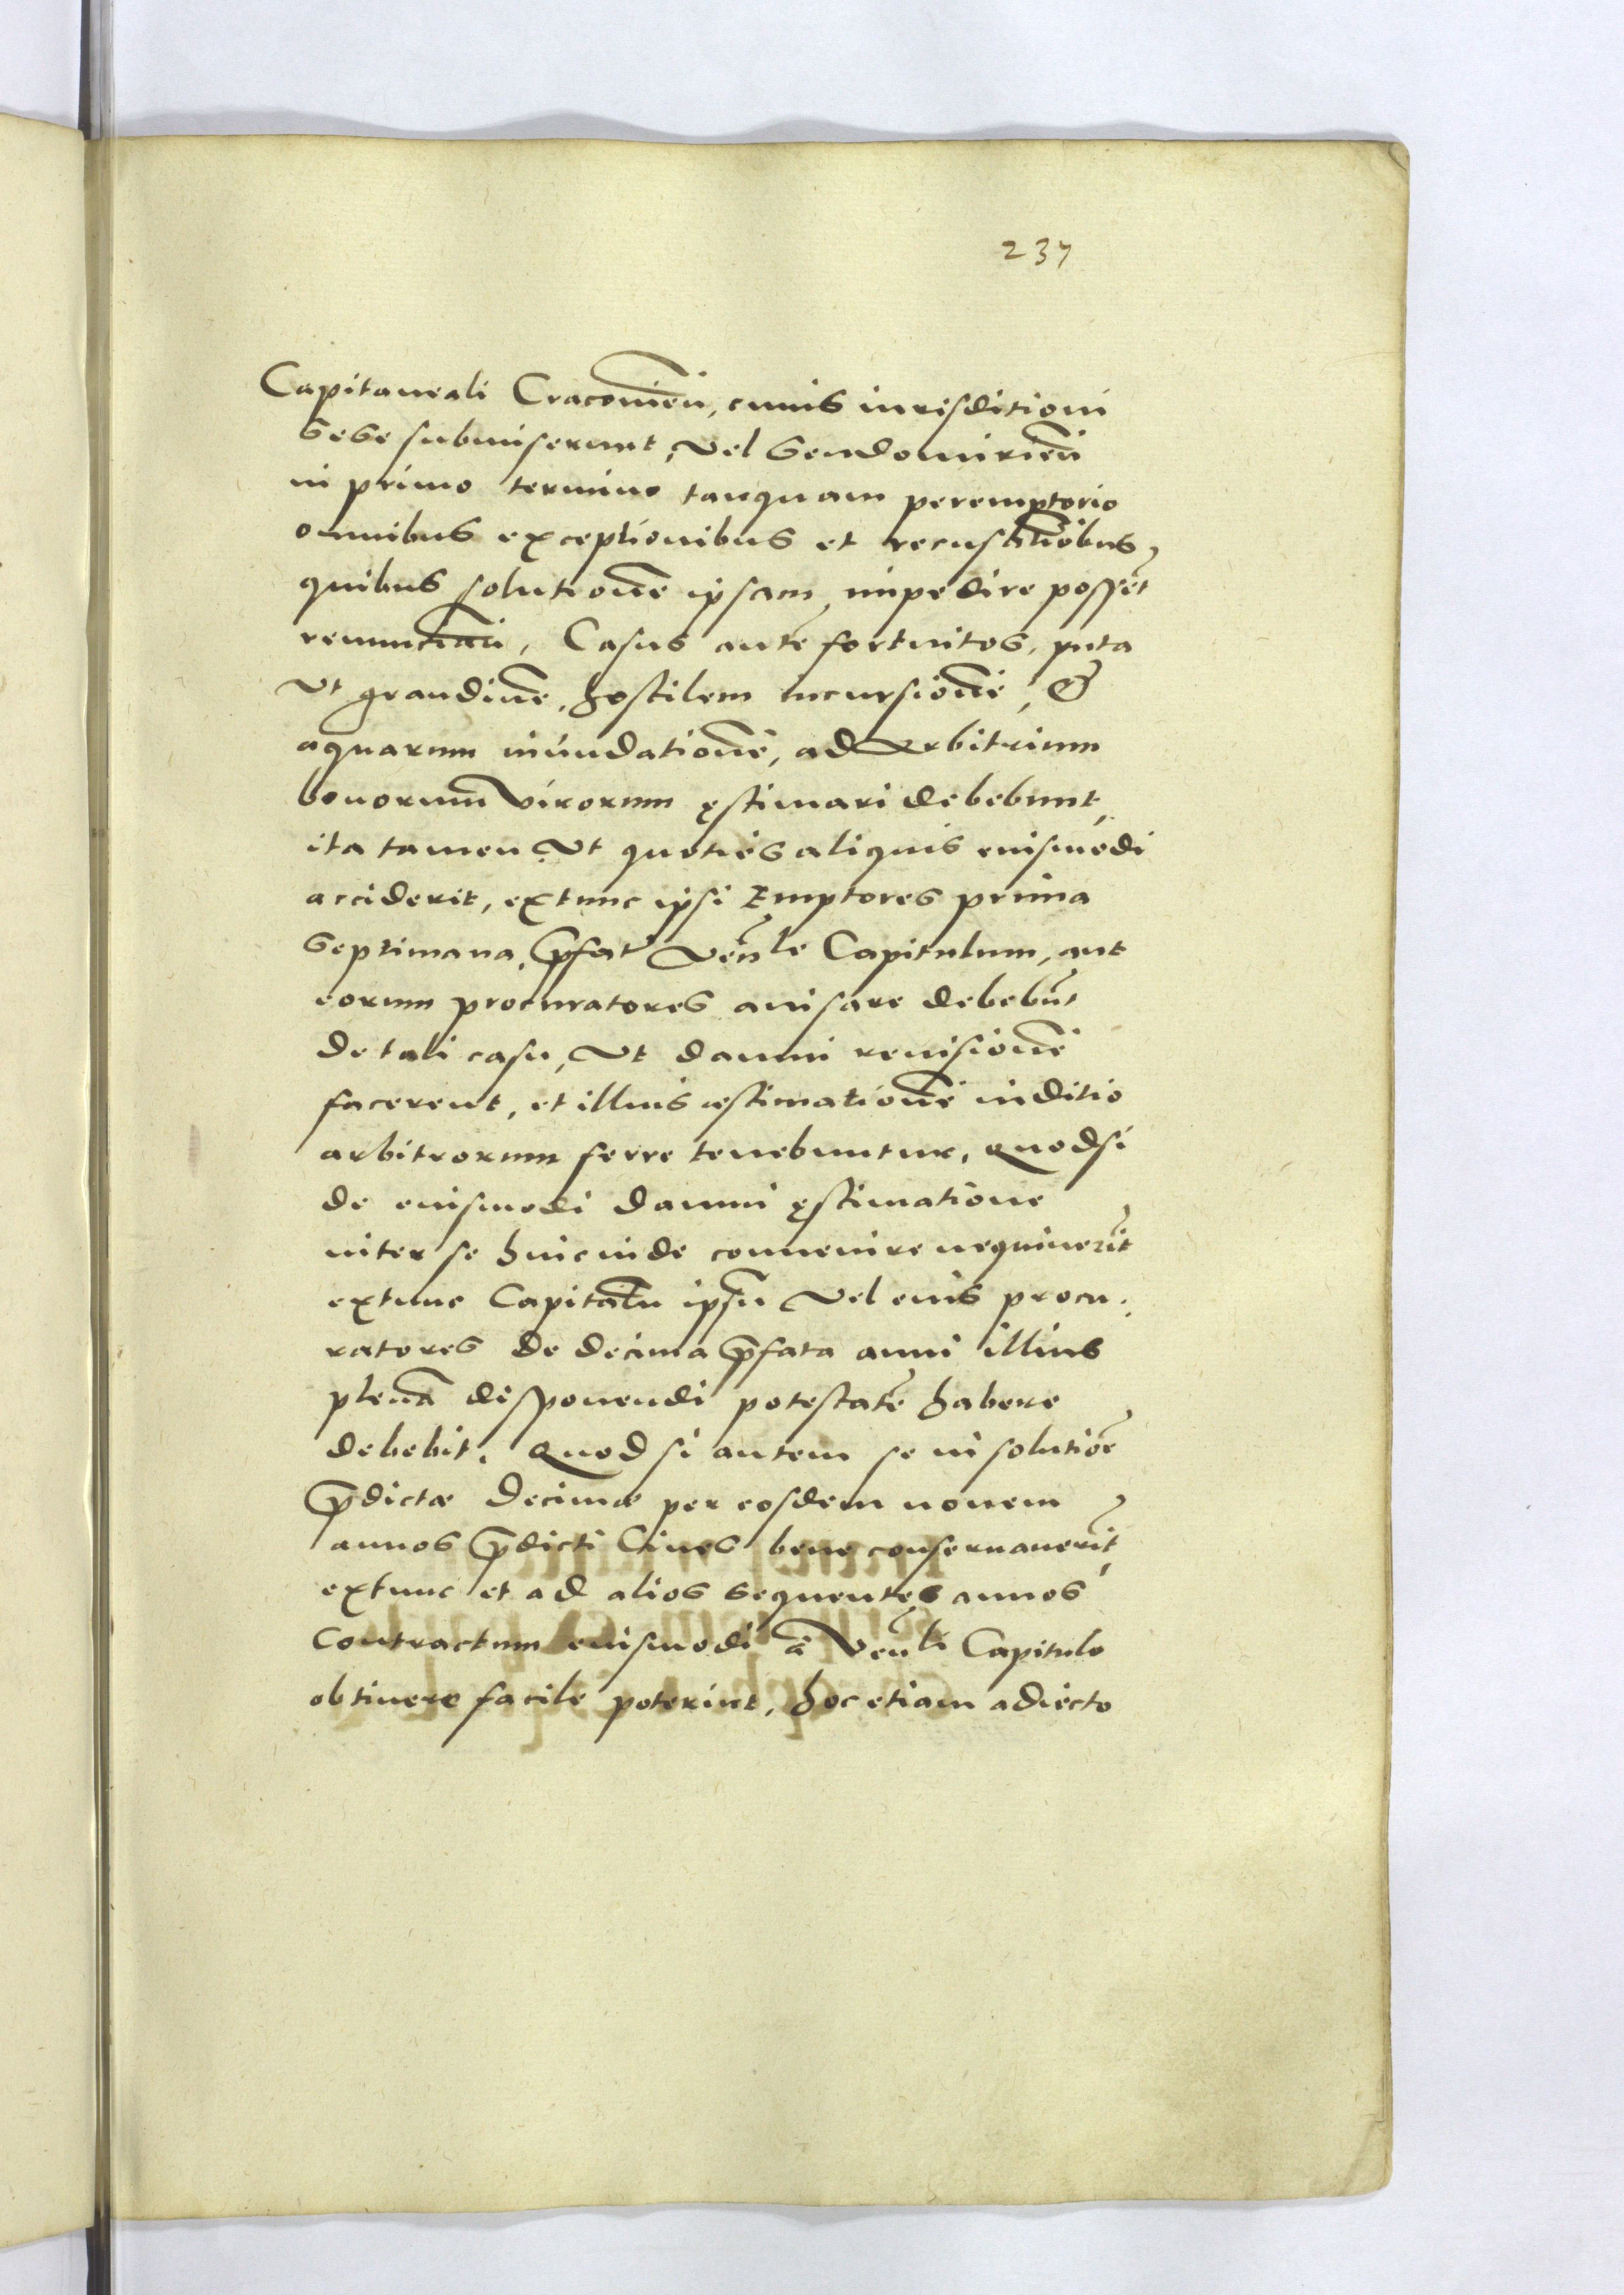 237
Capitaneali Cracouieñ, cuius iurisditioni
sese submiserunt, Vel Sendomirieñ
in primo termino tanquam peremptorio
omnibus exceptionibus et recusatioībus,
quibus solutionē ipsam, impedire possēt
renunciaň, Casus autē fortuitos, puta
Vt grandinē, hostilem incursionē, &
aquarum inundationē, ad arbitrium
bonorum Virorum ęstimari debebunt,
ita tamen Vt quoties aliquis eiusmodi
acciderit, extunc ipsi Emptores prima
Septimana, p̄fat̄ Veñle Capitulum, aut
eorum procuratores auisare debebūt
de tali casu, Vt damni reuisionē
facerent, et illius æstimationē iuditio
arbitrorum ferre tenebuntur, Quodsi
de eiusmodi damni ęstimatione
inter se hincinde conuenire nequiuerīt
extunc Capitulū ipsū Vel eius procu:
ratores de decima p̄fata anni illius
plenā disponendi potestatē habere
debebit. Quod si autem se in solutiōe
p̄dictæ Decimæ per eosdem nouem
annos p̄dicti Ciues bene conseruauerīt,
extunc et ad alios sequentes annos
Contractum eiusmodi à Veñli Capitulo
obtinere facile poterint, hoc etiam adiecto